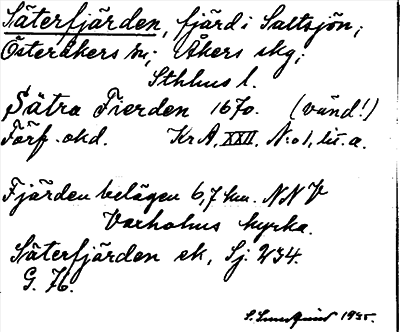 Säterfjärden, fjärd i Saltsjön;
Österåkers sn; Åkers skg;
Sthlms l.
Sätra Fierden 1670. (vänd!)
Förf. okd. Kr A, XXII, N:o 1, lit. a.
Fjärden belägen 6,7 km. NNV
Vaxholms kyrka.
Säterfjärden ek, Sj. 234.
G. 76.
S. 1935.